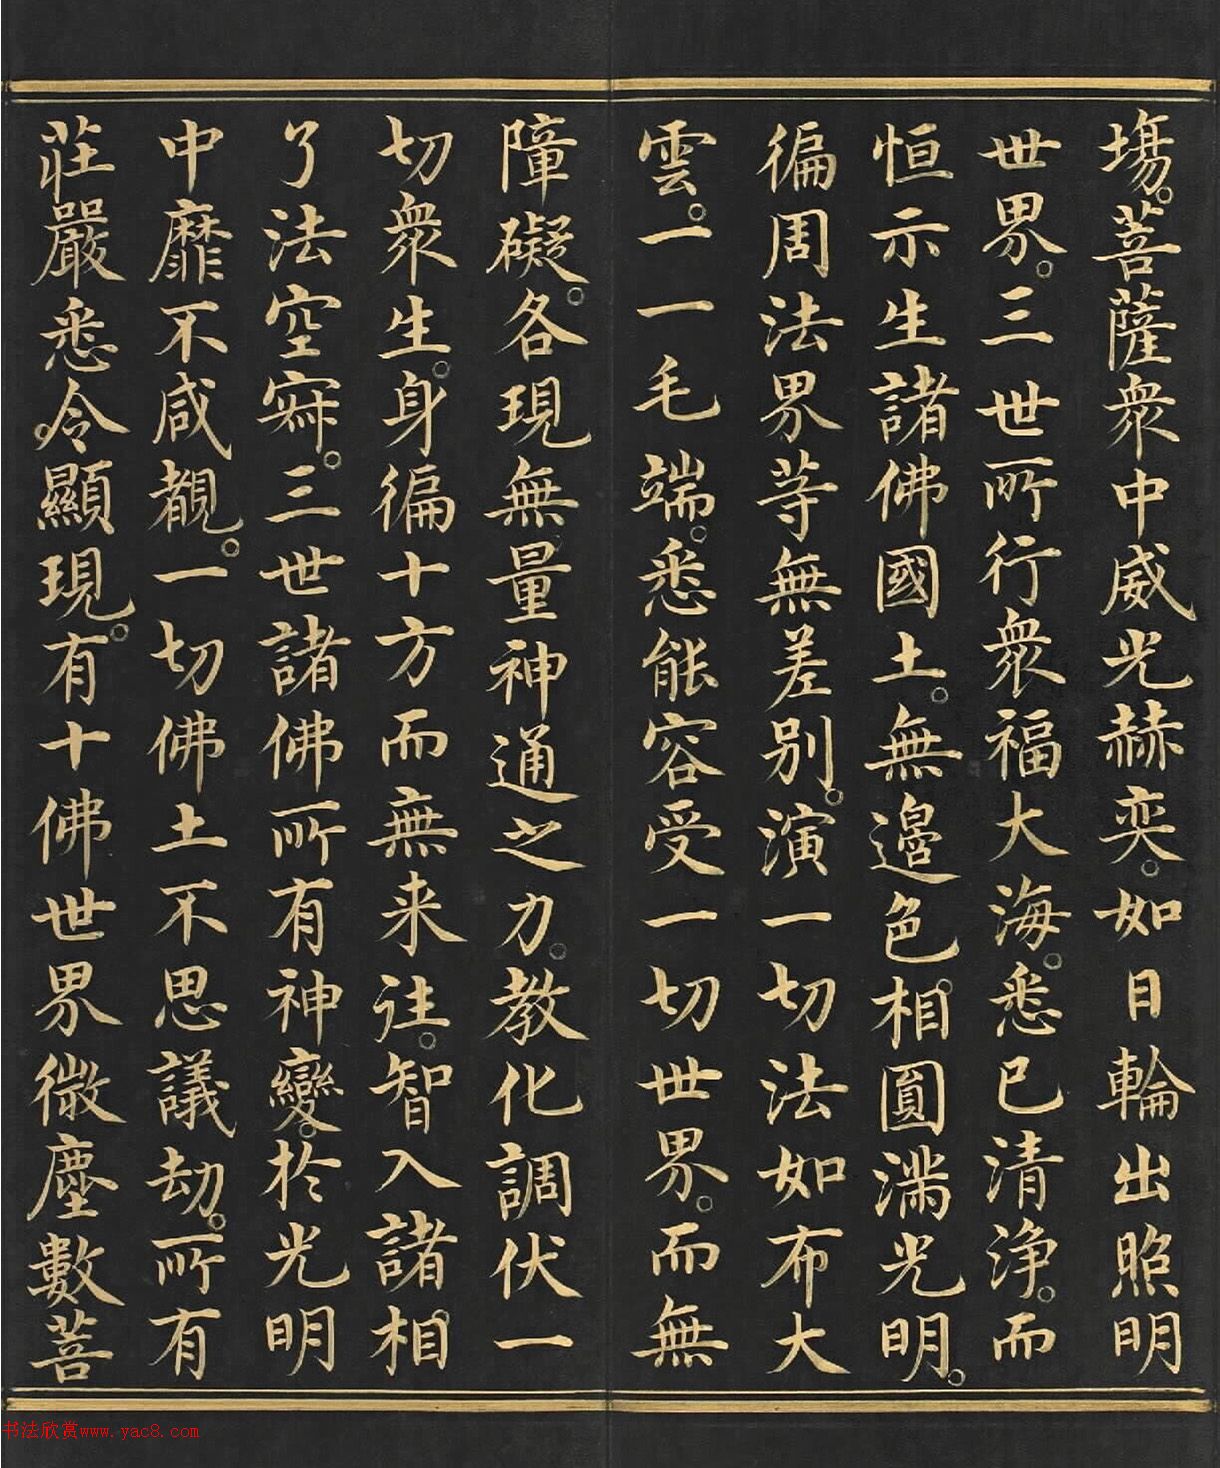 塲。菩薩衆中威光赫奕。如日輪出照明
世界。三世所行衆福大海。悉已清淨。而
恒示生諸佛國土。無邊色相。圓滿光明。
徧周法界等無差別。演一切法如布大
雲。一一毛端。悉能容受一切世界。而無
障礙。各現無量神通之力。教化調伏一
切衆生。身徧十方而無来往。智入諸相。
了法空寂。三世諸佛所有神變。於光明
中靡不咸覩。一切佛土不思議劫。所有
莊嚴悉令。顯現。有十佛世界微塵數菩
书法欣赏www.yac8.com